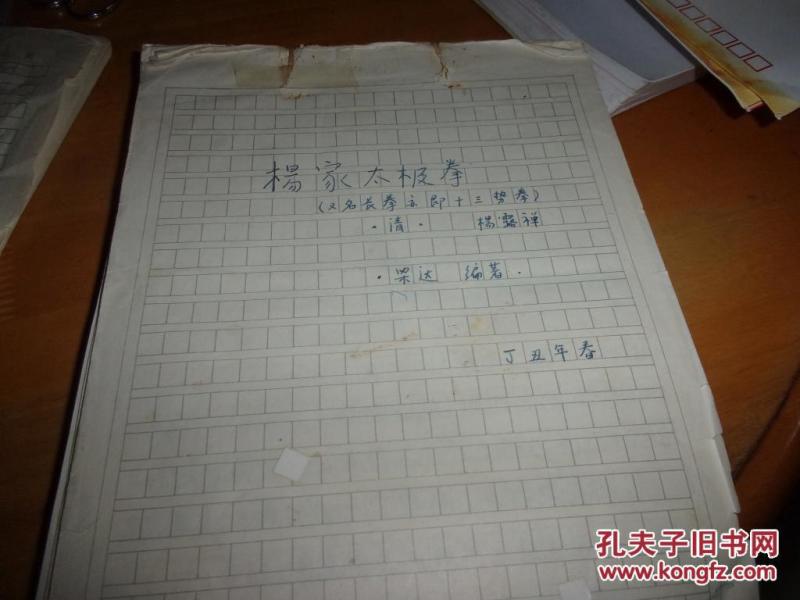 楊家太极拳
(又名长拳亦即十三势拳)
·清· 楊露禅
·梁达 编著·
丁丑年春
孔夫子旧书网
www.kongfz.com